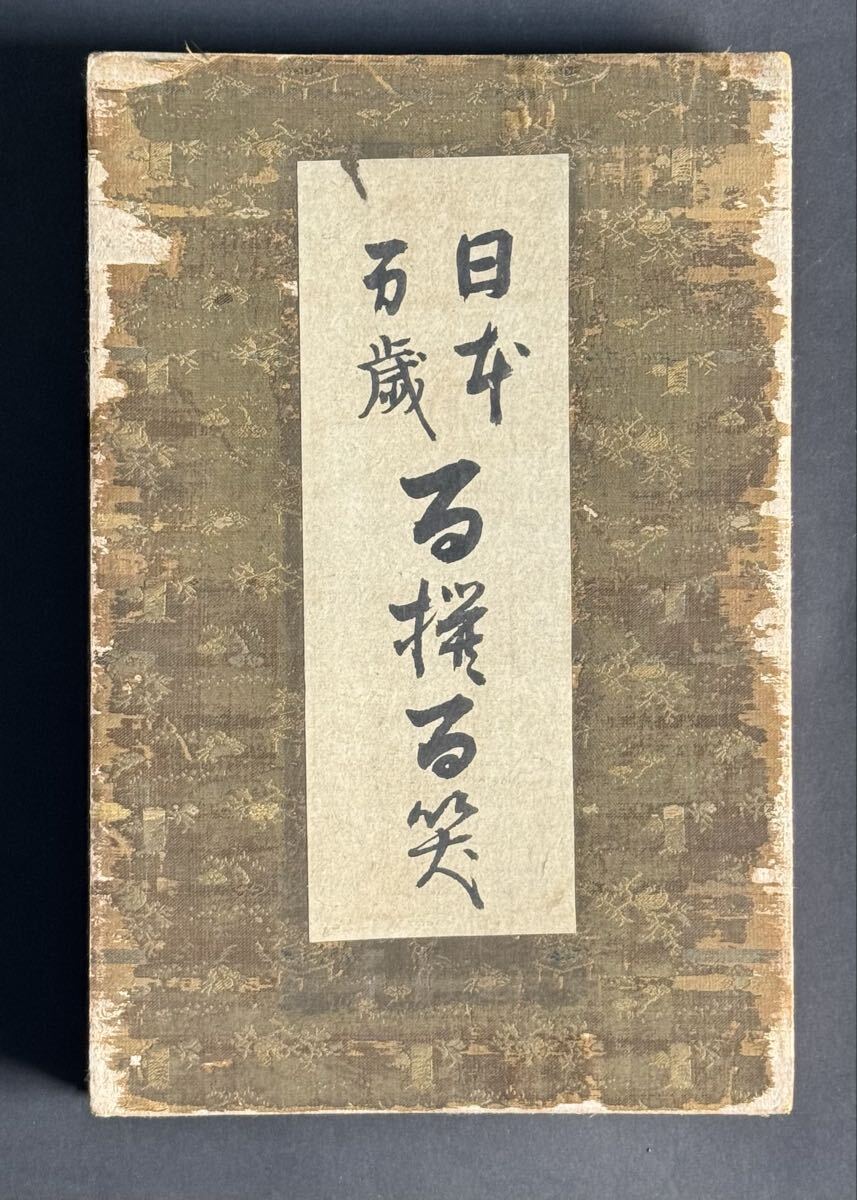 日本
万歳
百撰百笑